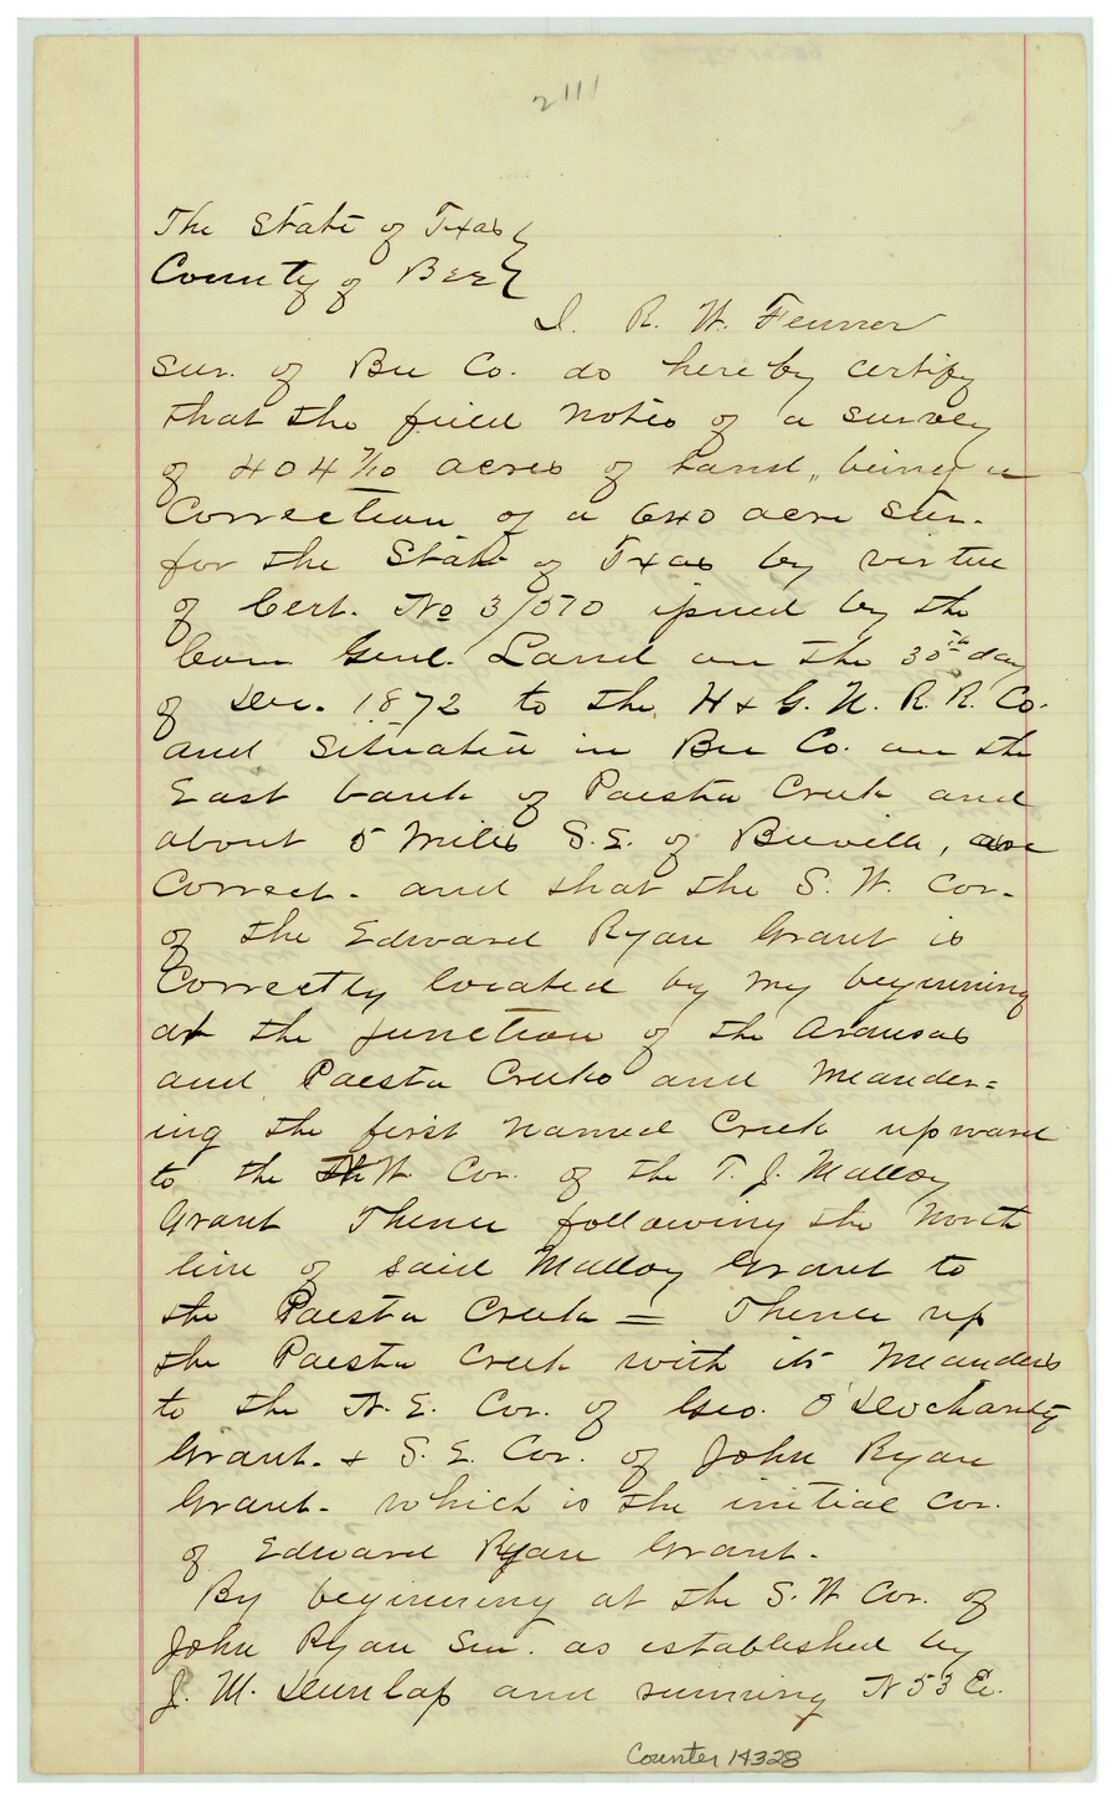 2111
The State of Texas }
County of Bee }
I. R. W. Fenner
Sur. of Bee Co. do hereby certify
that the field notes of a survey
of 404 7/10 acres of land, being a
Correction of a 640 acre Sur.
for the State of Texas by virtue
of Cert. No 3/570 issued by the
Com Genl. Land on the 30th day
of Dec. 1872 to the H & G. N. R. R. Co.
and situated in Bee Co. on the
East bank of Paesta Creek and
about 5 miles S. E. of Beeville, are
Correct. and that the S. W. Cor.
of the Edward Ryan Grant is
Correctly located by my beginning
at the junction of the Aransas
and Paesta Creeks and Meander=
ing the first named Creek upward
to the N. W. Cor. of the T. J. Malloy
Grant Thence following the North
line of said Malloy Grant to
the Paesta Creek = Thence up
the Paesta Creek with its Meanders
to the N. E. Cor. of Geo. O'Docharty
Grant. & S. E. Cor. of John Ryan
Grant- which is the initial Cor.
of Edward Ryan Grant.
By beginning at the S. W Cor. of
John Ryan Sur. as established by
J. M. Dunlap and running N 53 E.
Counter 14328